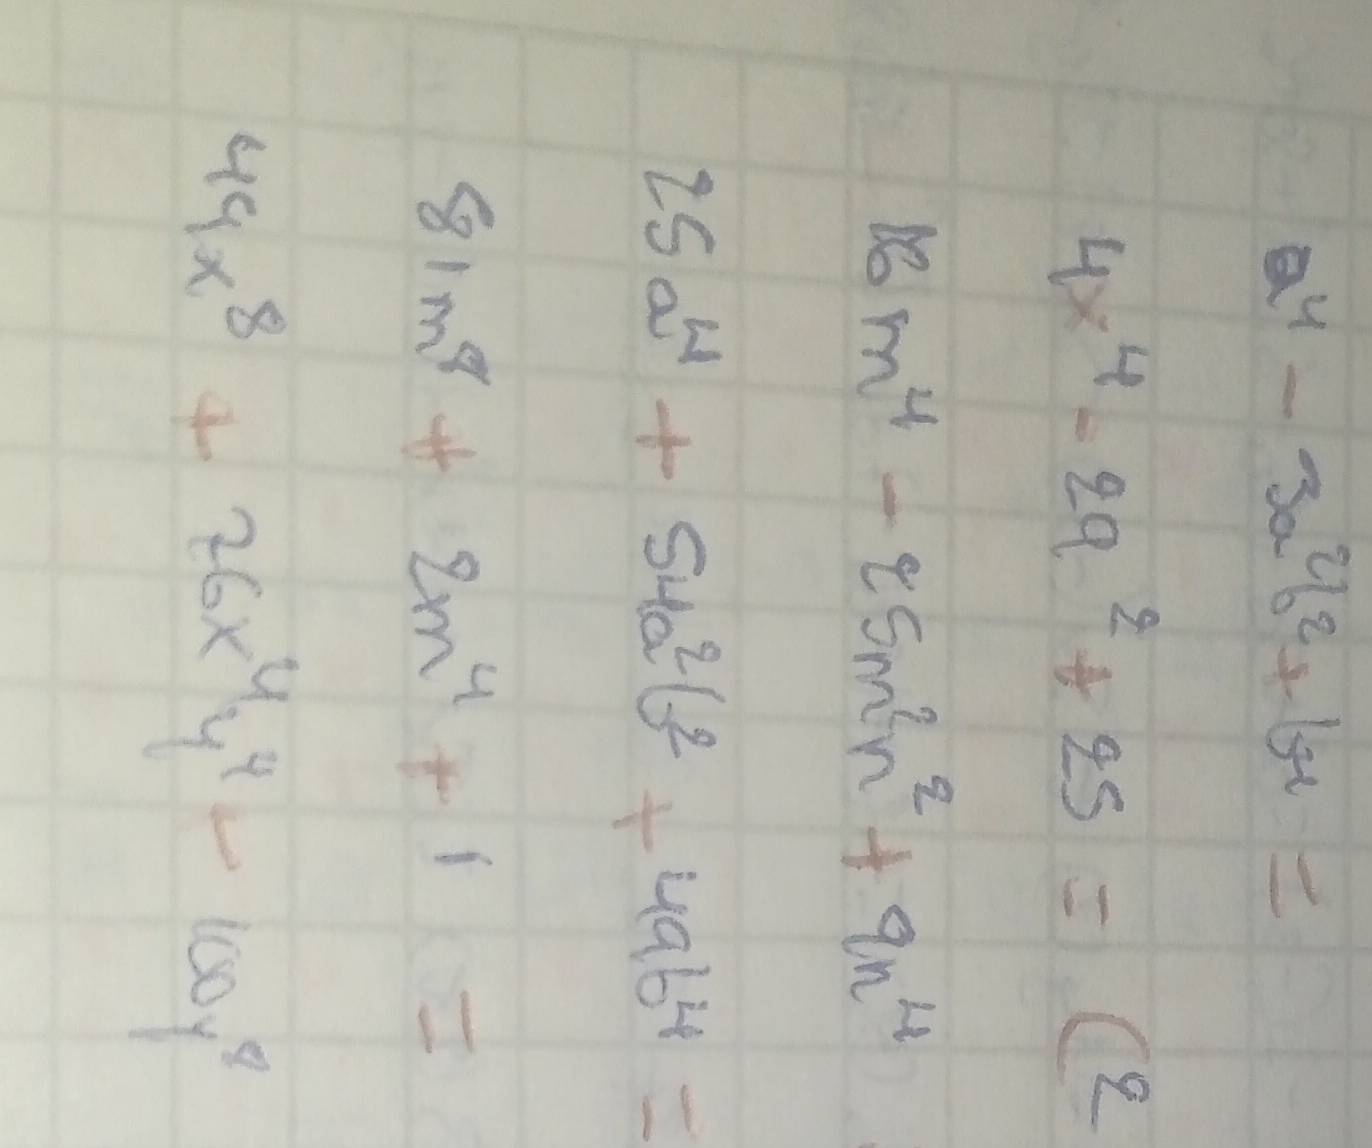 a⁴ - 3a²b² + b⁴ =
4x⁴ - 29 ² + 25 = (2
16m⁴ - 25m²n² + 9n⁴
25a⁴ + 54a²b² + 49b⁴ =
81m⁸ + 2m⁴ + 1 =
49x⁸ + 76x⁴y⁴ - 100y⁸